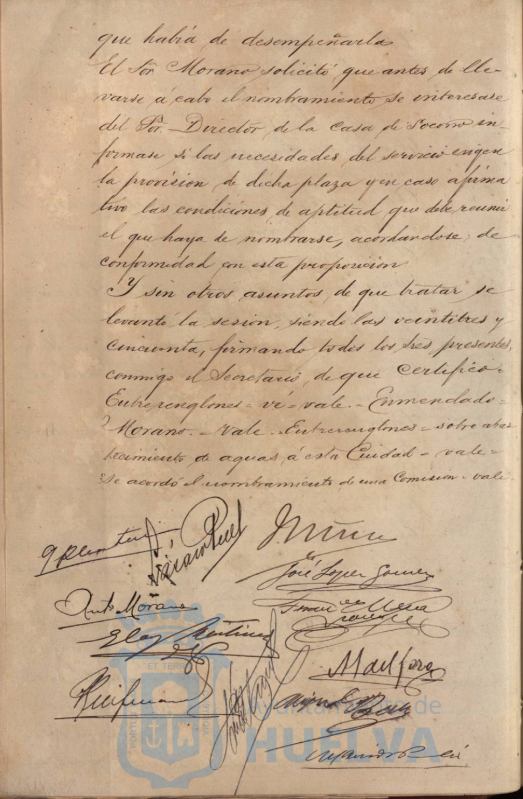 que había de desempeñarla
El Sor Morano solicitó que antes de lle-
varse á cabo el nombramiento se interesase
del Sor. Director de la Casa de Socorro in-
formase si las necesidades del servicio exigen
la provision de dicha plaza y en caso afirma
tivo las condiciones de aptitud que debe reunir
el que haya de nombrarse, acordandose de
conformidad con esta proposicion
Y sin otros asuntos de que tratar se
levantó la sesion, siendo las veintitres y
cincuenta, firmando todos los Sres presentes,
conmigo el Secretario, de que certifico.
Entrerenglones = vé = vale. - Enmendado =
Morano. - Vale. Entrerenglones = sobre abas
tecimiento de aguas á esta Ciudad = vale =
Se acordó el nombramiento de una Comision = vale.
José Lopez Gomez
Anto Morano
Eloy Martinez
Ayuntamiento de
HUELVA